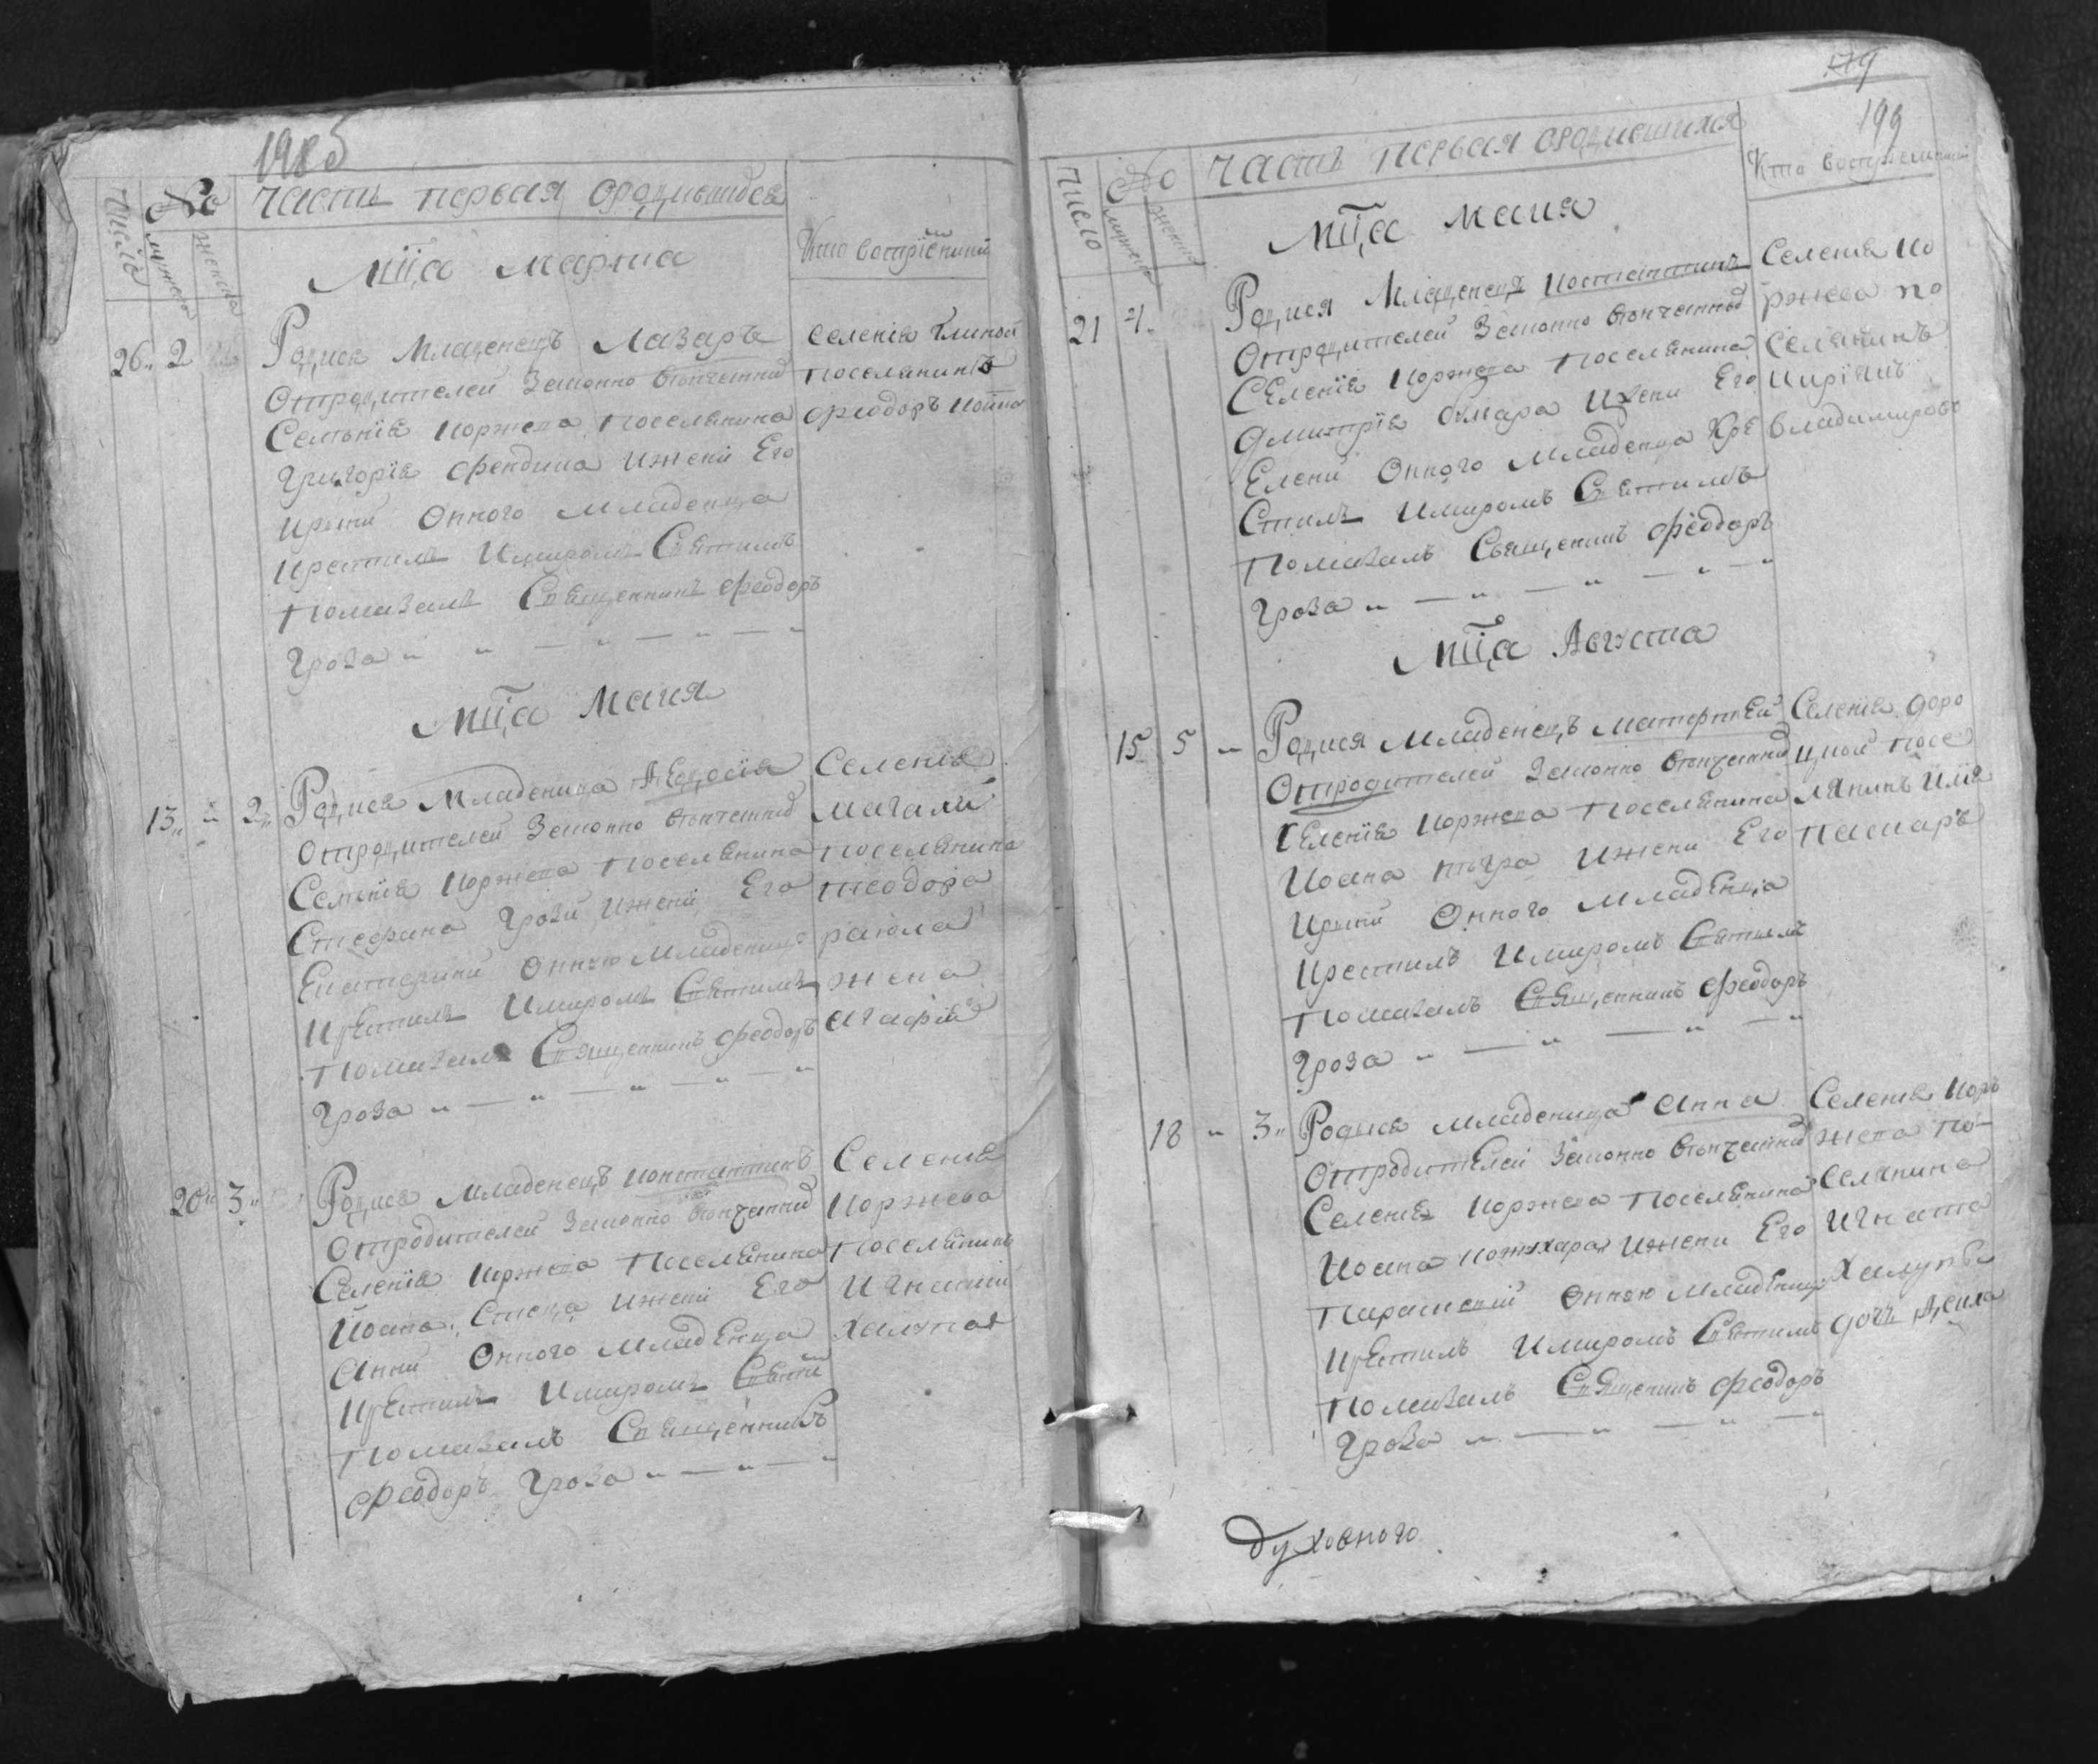 198 б
Число
№
мужеска
женска
Часть первая ородившихся
Кто воспріемний
Мца Марта
26 2
Родися Младенецъ Лазаръ
Отродителей Законно Вѣнчанны
Селѣнія Коржева Поселянина
Григорія Фендина Ижени Его
Ирыни Онного Младенца
Крестилъ Имиромъ Святимъ
Помазалъ Священникъ Феодоръ
Гроза
Селенія Глиной
Поселянинъ
Феодоръ
Мца Маия
13 2
Родися Младеница Феодосія
Отродителей Законно Вѣнчанны
Селенія Коржева Поселянина
Стефана Грози Ижени Его
Екатерини Онною Младеницу
Крестилъ Имиромъ Святимъ
Помазалъ Священникъ Феодоръ
Гроза
Селенія
Магали
Поселянина
Теодора
раюла
жена
Агафія
20 3
Родися Младенецъ Константинъ
Отродителей Законно Вѣнчанны
Селенія Коржева Поселянина
Іоана Ижени Его
Анни Онного Младенца
Крестилъ Имиромъ Святи
Помазалъ Священникъ
Феодоръ Гроза
Селенія
Коржева
Поселянинъ
Игнатий
Халупа
199
Число
№
мужеска
женска
Часть Первая ородившихся
Кто воспріемний
Мца Маия
21 4
Родися Младенецъ Костантинъ
Отродителей Законно Вѣнчанны
Селенія Коржева Поселянина
Дмитрія Ижени Его
Елени Онного Младенца Кре
Стилъ Имиромъ Святимъ
Помазалъ Священикъ Феодоръ
Гроза
Селенія Ко
ржева по
Селянинъ
Киріякъ
Владимировъ
Мца Августа
15 5
Родися Младенецъ Матерней
Отродителей Законно Вѣнчанны
Селенія Коржева Поселянина
Иоана Ижени Его
Ирыни Онного Младенца
Крестилъ Имиромъ Святимъ
Помазалъ Священникъ Феодоръ
Гроза
Селенія Доро
цкой Посе
лянинъ Илія
Пашаръ
18 3
Родися Младеница Анна
Отродителей Законно Вѣнчанны
Селенія Коржева Поселянина
Иоана Кожухара Ижени Его
Параскевій Онною Младеницу
Крестилъ Имиромъ Святимъ
Помазалъ Священикъ Феодоръ
Гроза
Селенія Кор
жева По-
Селянина
Игната
Халупы
дочь
Духовного